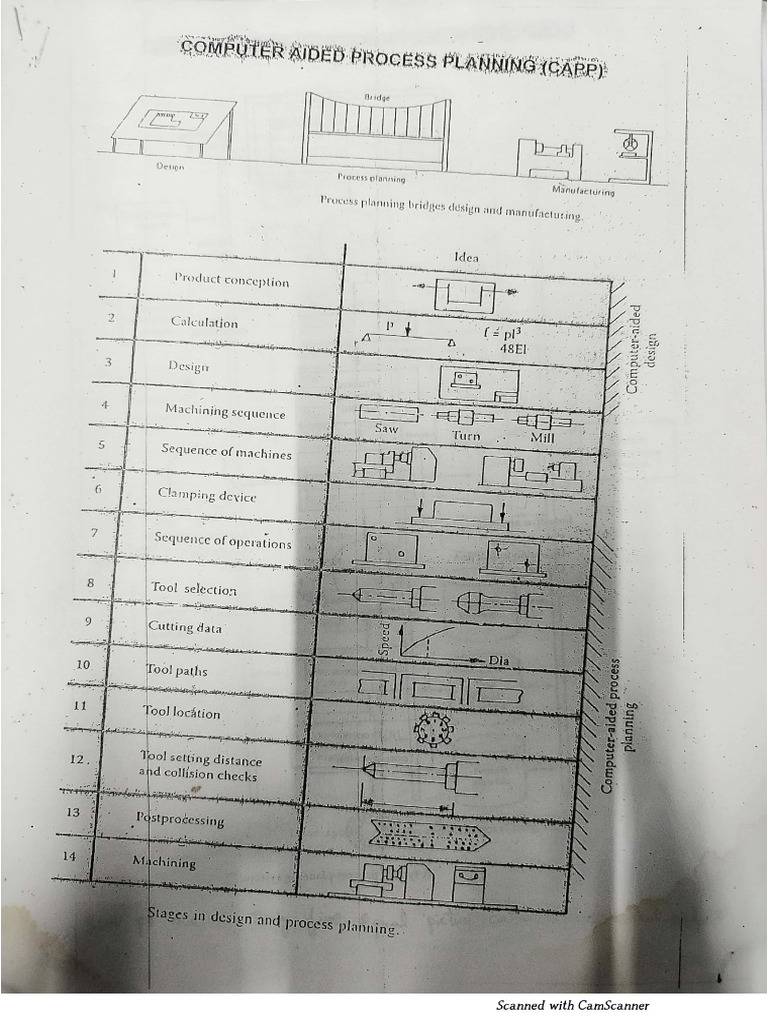 COMPUTER AIDED PROCESS PLANNING (CAPP)
Bridge
Design
Process planning
Manufacturing
Process planning bridges design and manufacturing.
Idea
1 Product conception
2 Calculation
P
f = pl³
48EI
3 Design
4 Machining sequence
Saw Turn Mill
5 Sequence of machines
6 Clamping device
7 Sequence of operations
8 Tool selection
9 Cutting data
Speed
Dia
10 Tool paths
11 Tool location
12. Tool setting distance
and collision checks
13 Postprocessing
14 Machining
Computer-aided
design
Computer-aided process
planning
Stages in design and process planning.
Scanned with CamScanner